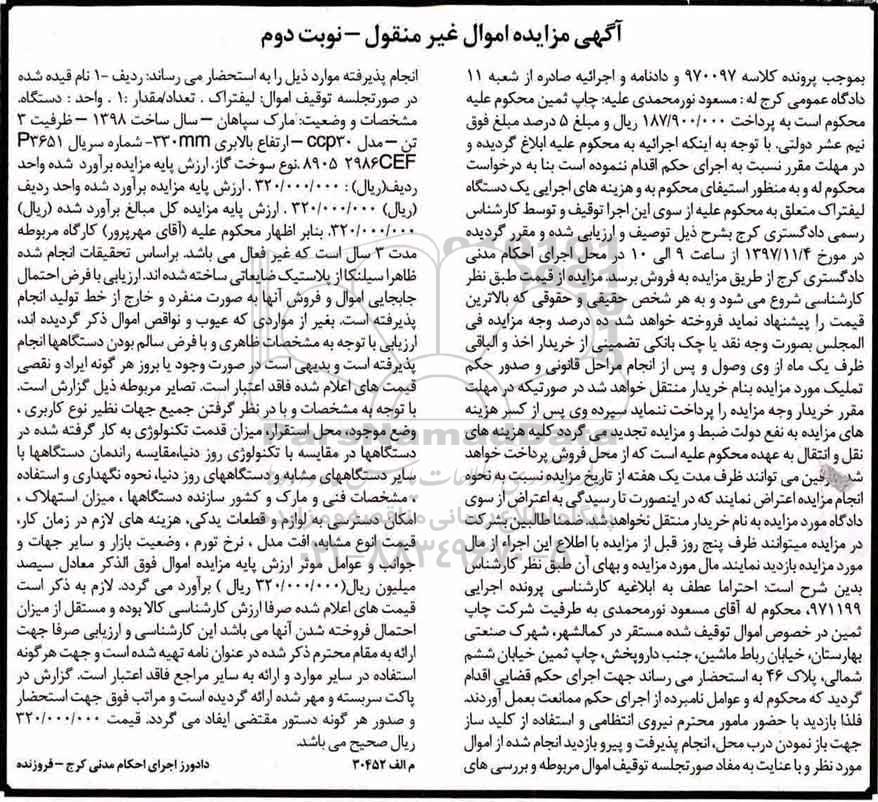 آگهی مزایده اموال غیر منقول – نوبت دوم
بموجب پرونده کلاسه ۹۷۰۰۹۷ و دادنامه و اجرائیه صادره از شعبه ۱۱
دادگاه عمومی کرج له : مسعود نورمحمدی علیه: چاپ ثمین محکوم علیه
محکوم است به پرداخت ۱۸۷/۹۰۰/۰۰۰ ریال و مبلغ ۵ درصد مبلغ فوق
نیم عشر دولتی. با توجه به اینکه اجرائیه به محکوم علیه ابلاغ گردیده و
در مهلت مقرر نسبت به اجرای حکم اقدام ننموده است بنا به درخواست
محکوم له و به منظور استیفای محکوم به و هزینه های اجرایی یک دستگاه
لیفتراک متعلق به محکوم علیه از سوی این اجرا توقیف و توسط کارشناس
رسمی دادگستری کرج بشرح ذیل توصیف و ارزیابی شده و مقرر گردیده
در مورخ ۱۳۹۷/۱۱/۴ از ساعت ۹ الی ۱۰ در محل اجرای احکام مدنی
دادگستری کرج از طریق مزایده به فروش برسد مزایده از قیمت طبق نظر
کارشناسی شروع می شود و به هر شخص حقیقی و حقوقی که بالاترین
قیمت را پیشنهاد نماید فروخته خواهد شد ده درصد وجه مزایده فی
المجلس بصورت وجه نقد یا چک بانکی تضمینی از خریدار اخذ و الباقی
ظرف یک ماه از وی وصول و پس از انجام مراحل قانونی و صدور حکم
تملیک مورد مزایده بنام خریدار منتقل خواهد شد در صورتیکه در مهلت
مقرر خریدار وجه مزایده را پرداخت ننماید سپرده وی پس از کسر هزینه
های مزایده به نفع دولت ضبط و مزایده تجدید می گردد کلیه هزینه های
نقل و انتقال به عهده محکوم علیه است که از محل فروش پرداخت خواهد
شد طرفین می توانند ظرف مدت یک هفته از تاریخ مزایده نسبت به نحوه
انجام مزایده اعتراض نمایند که در اینصورت تا رسیدگی به اعتراض از سوی
دادگاه مورد مزایده به نام خریدار منتقل نخواهد شد. ضمنا طالبین بشرکت
در مزایده میتوانند ظرف پنج روز قبل از مزایده با اطلاع این اجراء از مال
مورد مزایده بازدید نمایند. مال مورد مزایده و بهای آن طبق نظر کارشناس
بدین شرح است: احتراما عطف به ابلاغیه کارشناسی پرونده اجرایی
۹۷۱۱۹۹، محکوم له آقای مسعود نورمحمدی به طرفیت شرکت چاپ
ثمین در خصوص اموال توقیف شده مستقر در کمالشهر، شهرک صنعتی
بهارستان، خیابان رباط ماشین، جنب داروپخش، چاپ ثمین خیابان ششم
شمالی، پلاک ۴۶ به استحضار می رساند جهت اجرای حکم قضایی اقدام
گردید که محکوم له و عوامل نامبرده از اجرای حکم ممانعت بعمل آوردند.
فلذا بازدید با حضور مامور محترم نیروی انتظامی و استفاده از کلید ساز
جهت باز نمودن درب محل، انجام پذیرفت و پیرو بازدید انجام شده از اموال
مورد نظر و با عنایت به مفاد صورتجلسه توقیف اموال مربوطه و بررسی های
انجام پذیرفته موارد ذیل را به استحضار می رساند: ردیف -۱ نام قیده شده
در صورتجلسه توقیف اموال: لیفتراک . تعداد/مقدار :۱ . واحد : دستگاه.
مشخصات و وضعیت: مارک سپاهان – سال ساخت ۱۳۹۸ – ظرفیت ۳
تن – مدل ccp۳۰ – ارتفاع بالابری ۳۳۰mm- شماره سریال P۳۶۵۱
۲۹۸۶CEF ۸۹۰۵ .نوع سوخت گاز. ارزش پایه مزایده برآورد شده واحد
ردیف(ریال) : ۳۲۰/۰۰۰/۰۰۰ . ارزش پایه مزایده برآورد شده واحد ردیف
(ریال) ۳۲۰/۰۰۰/۰۰۰ . ارزش پایه مزایده کل مبالغ برآورد شده (ریال)
۳۲۰/۰۰۰/۰۰۰. بنابر اظهار محکوم علیه (آقای مهرپرور) کارگاه مربوطه
مدت ۳ سال است که غیر فعال می باشد. براساس تحقیقات انجام شده
ظاهرا سیلنکا از پلاستیک ضایعاتی ساخته شده اند. ارزیابی با فرض احتمال
جابجایی اموال و فروش آنها به صورت منفرد و خارج از خط تولید انجام
پذیرفته است. بغیر از مواردی که عیوب و نواقص اموال ذکر گردیده اند،
ارزیابی با توجه به مشخصات ظاهری و با فرض سالم بودن دستگاهها انجام
پذیرفته است و بدیهی است در صورت وجود یا بروز هر گونه ایراد و نقصی
قیمت های اعلام شده فاقد اعتبار است. تصایر مربوطه ذیل گزارش است.
با توجه به مشخصات و با در نظر گرفتن جمیع جهات نظیر نوع کاربری ،
وضع موجود، محل استقرار، میزان قدمت تکنولوژی به کار گرفته شده در
دستگاهها در مقایسه با تکنولوژی روز دنیا،مقایسه راندمان دستگاهها با
سایر دستگاههای مشابه و دستگاههای روز دنیا، نحوه نگهداری و استفاده
، مشخصات فنی و مارک و کشور سازنده دستگاهها ، میزان استهلاک ،
امکان دسترسی به لوازم و قطعات یدکی، هزینه های لازم در زمان کار،
قیمت انوع مشابه، افت مدل ، نرخ تورم ، وضعیت بازار و سایر جهات و
جوانب و عوامل موثر ارزش پایه مزایده اموال فوق الذکر معادل سیصد
میلیون ریال(۳۲۰/۰۰۰/۰۰۰ ریال ) برآورد می گردد. لازم به ذکر است
قیمت های اعلام شده صرفا ارزش کارشناسی کالا بوده و مستقل از میزان
احتمال فروخته شدن آنها می باشد این کارشناسی و ارزیابی صرفا جهت
ارائه به مقام محترم ذکر شده در عنوان نامه تهیه شده است و جهت هرگونه
استفاده در سایر موارد و ارائه به سایر مراجع فاقد اعتبار است. گزارش در
پاکت سربسته و مهر شده ارائه گردیده است و مراتب فوق جهت استحضار
و صدور هر گونه دستور مقتضی ایفاد می گردد. قیمت ۳۲۰/۰۰۰/۰۰۰
ریال صحیح می باشد.
م الف ۳۰۴۵۲ دادورز اجرای احکام مدنی کرج – فروزنده
ParsNamadData
۰۲۱-۸۸۳۴۹۶۷۰-۸